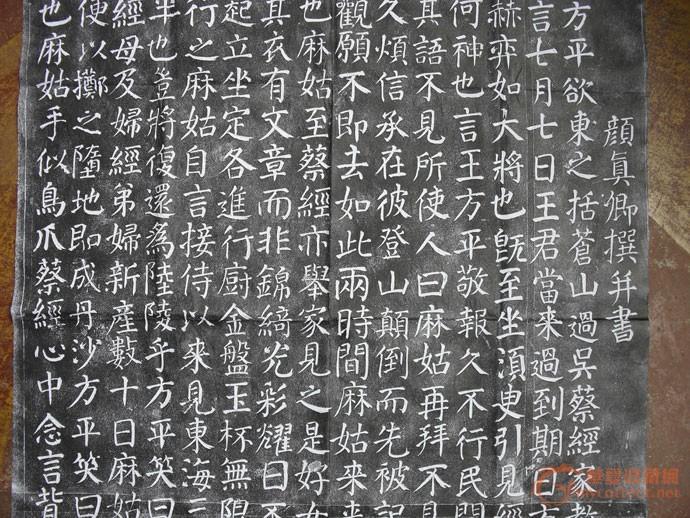 顏真卿撰并書
方平欲東之括蒼山過吳蔡經家教
言七月七日王君當来過到期日方
赫弈如大將也既至坐湏臾引見經
何神也言王方平敬報久不行民間
其語不見所使人曰麻姑再拜不見
久煩信承在彼登山顛倒而先被記
觀願不即去如此兩時間麻姑来来
也麻姑至蔡經亦舉家見之是好女
其衣有文章而非錦綺光彩耀日不
起立坐定各進行廚金盤玉杯無限
行之麻姑自言接侍以来見東海三
半也豈將復還為陸陵乎方平笑曰
經母及婦經弟婦新産數十日麻姑
使以擲之墮地即成丹沙方平笑曰
也麻姑手似鳥爪蔡經心中念言背